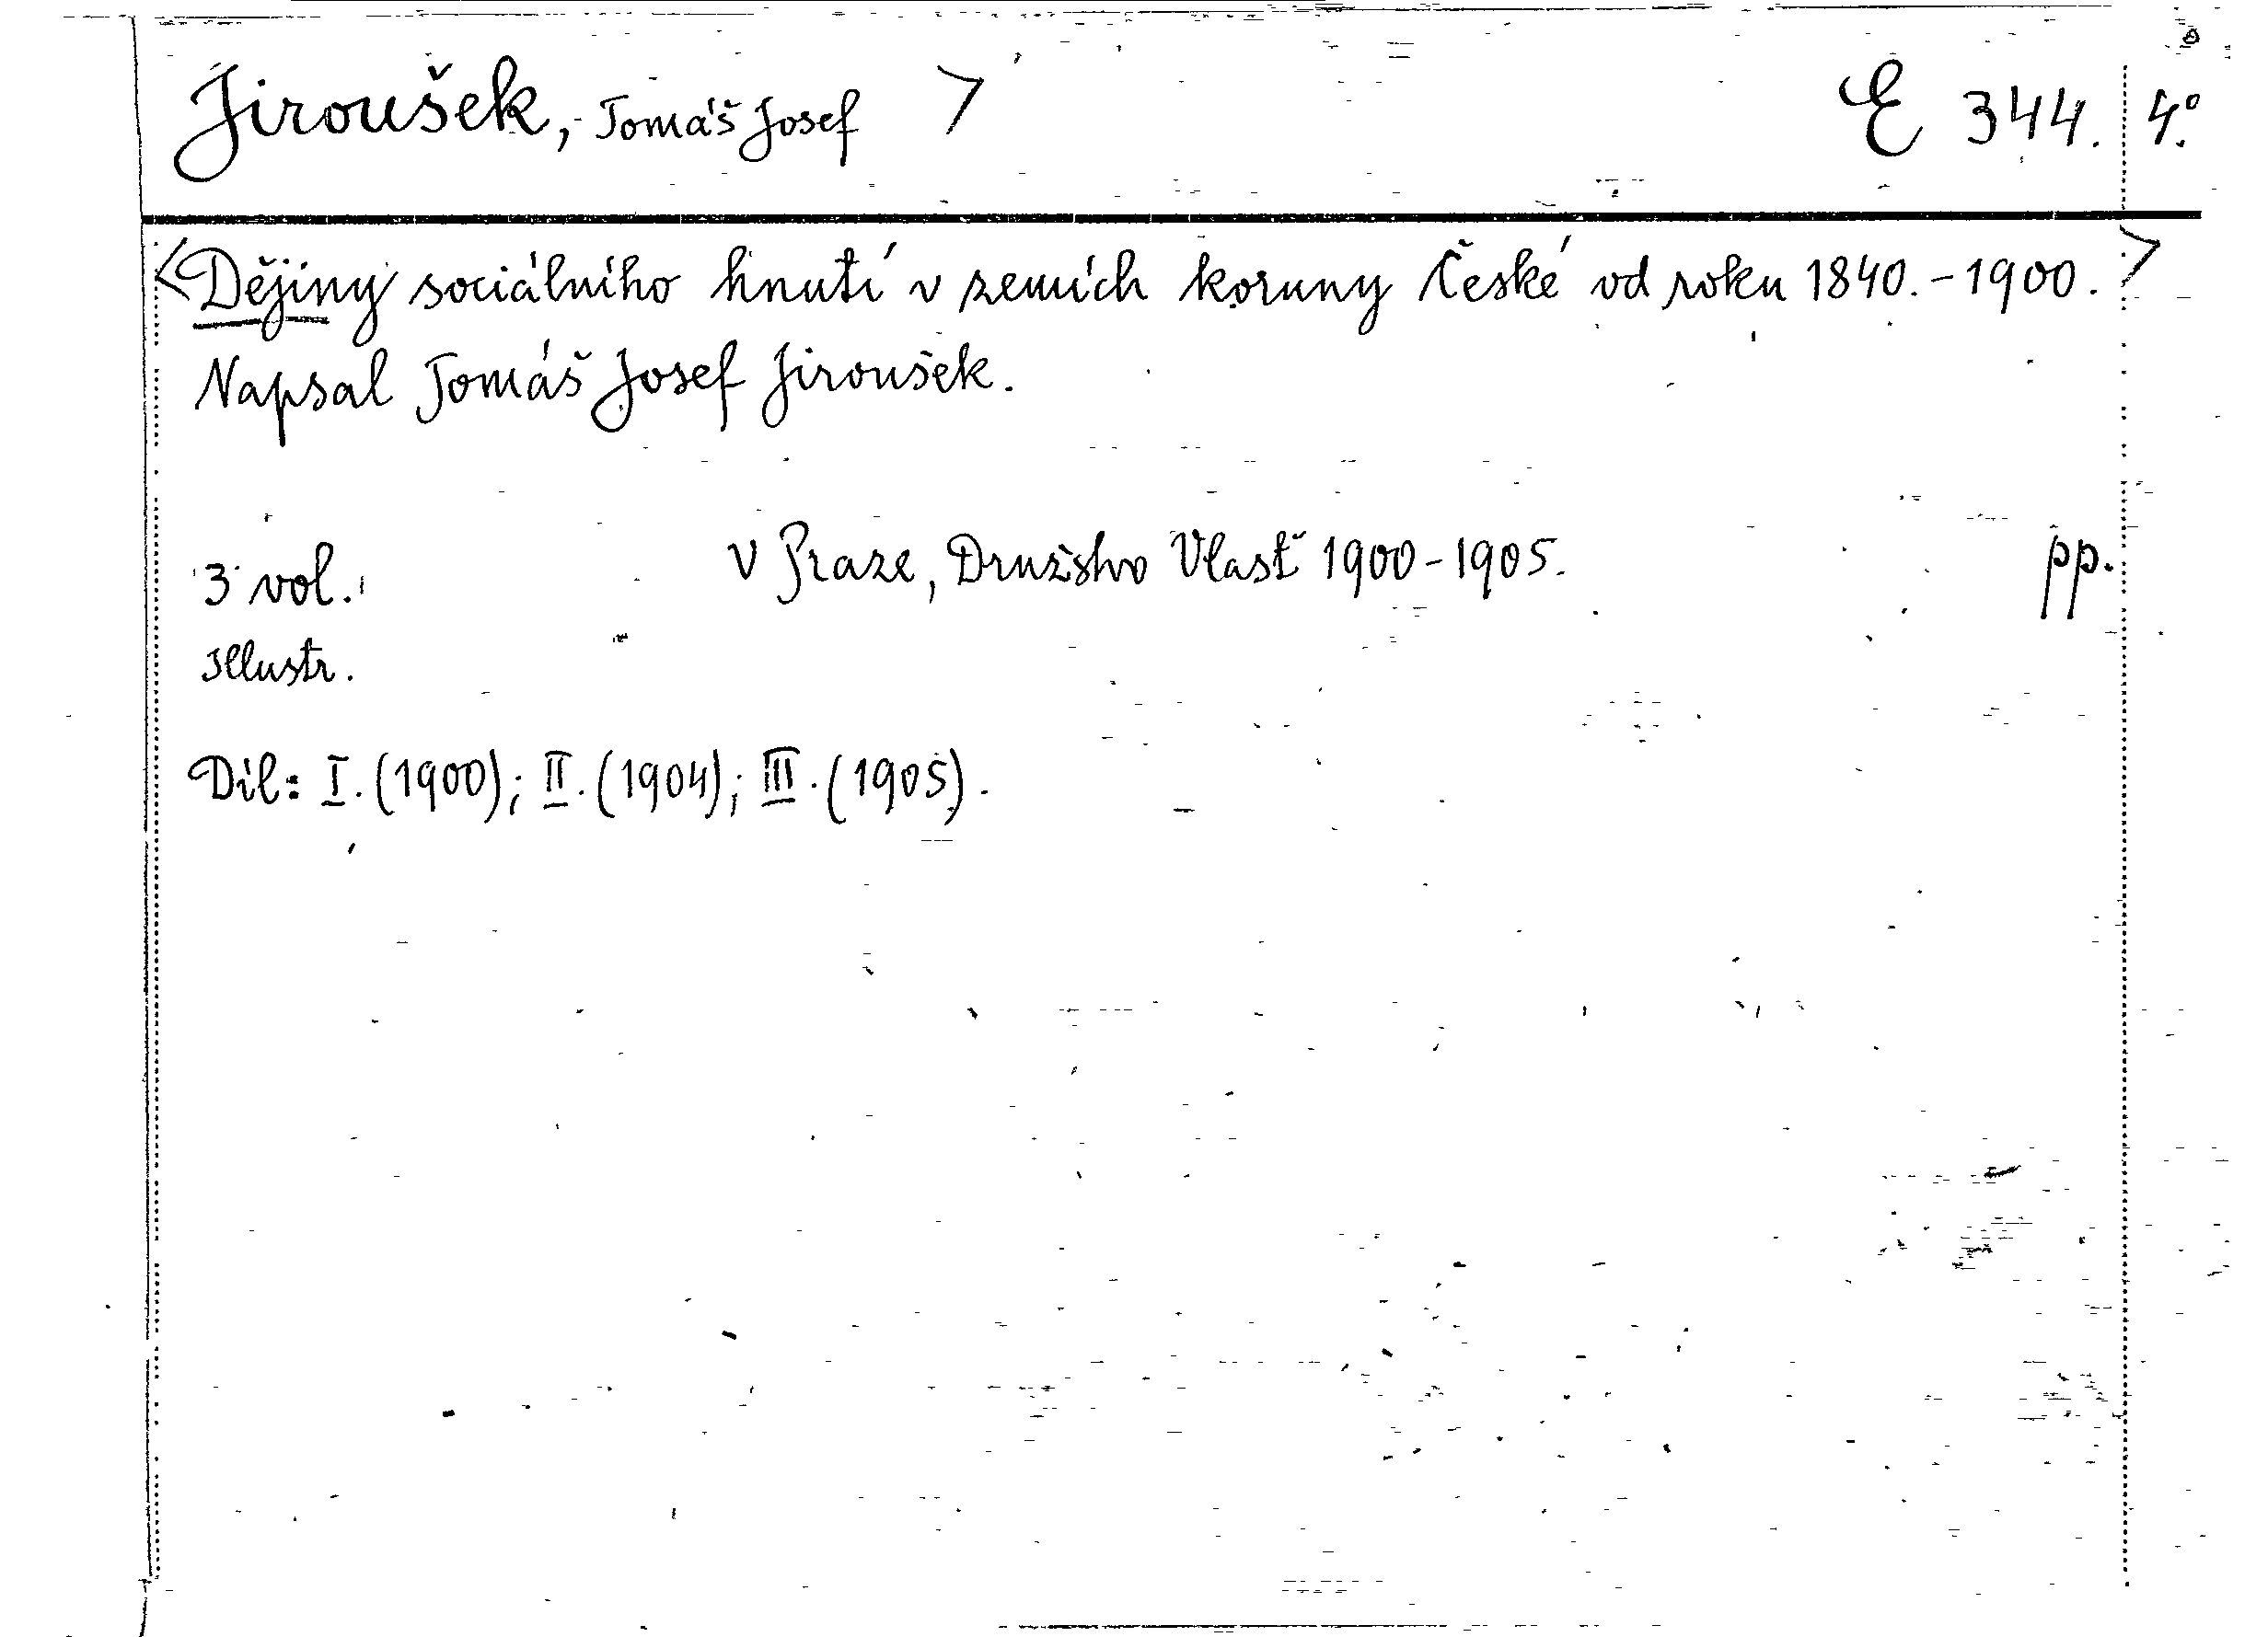 Jiroušek, Tomáš Josef > E 344. 4.º
<Dějiny sociálního hnutí v zemích koruny České od roku 1840.-1900.>
Napsal Tomáš Josef Jiroušek.
3 vol. V Praze, Družstvo Vlasť 1900-1905. pp.
illustr.
Díl: I. (1900); II. (1904); III. (1905).